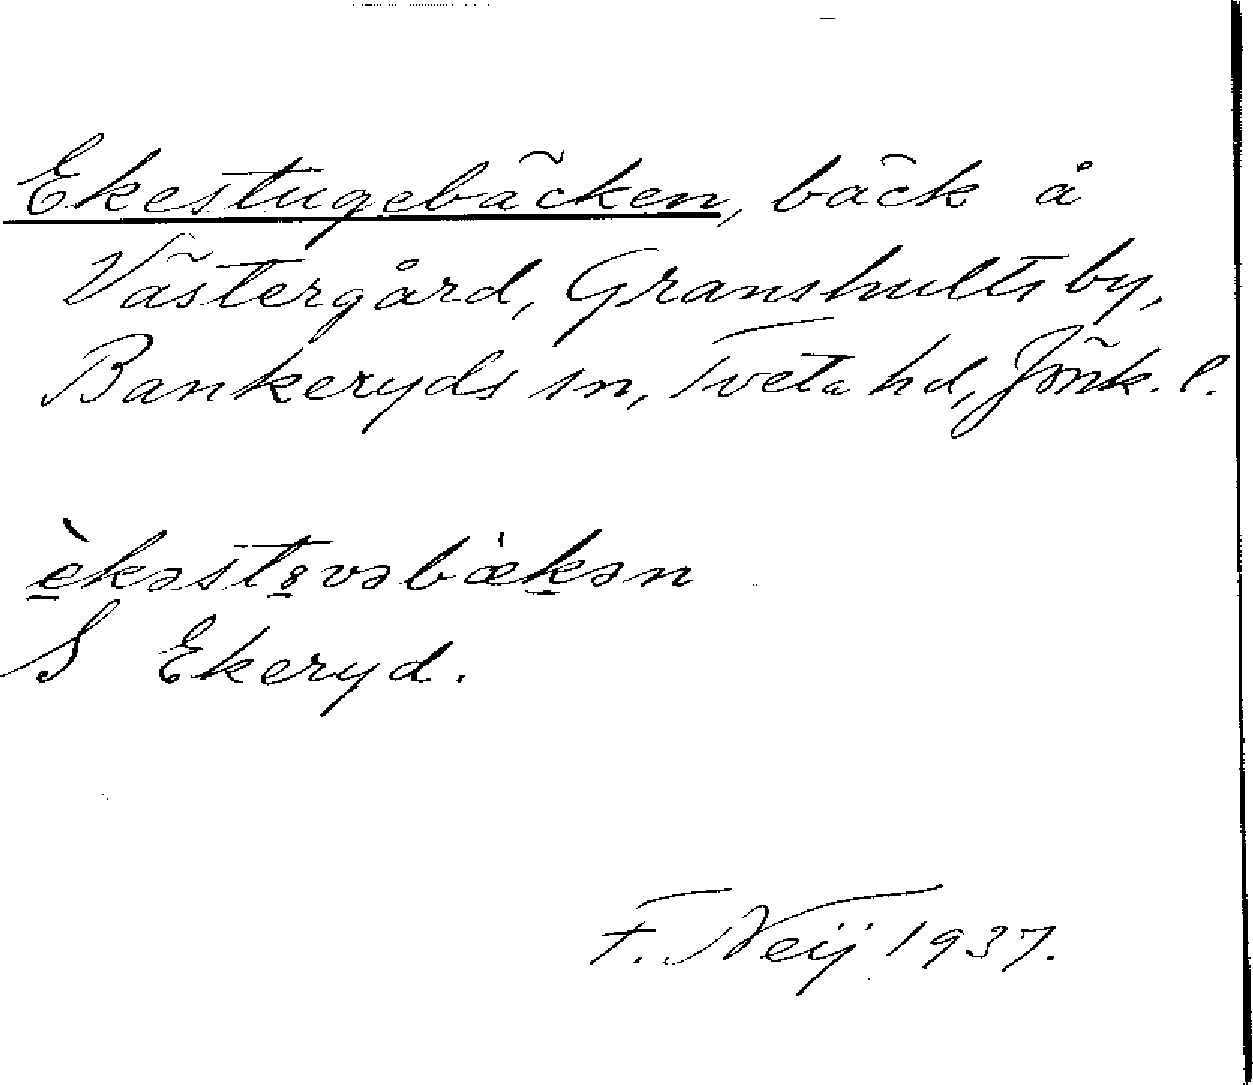 Ekestugebäcken, bäck å
Västergård, Granshults by,
Bankeryds sn, Tveta hd, Jönk. l.
èkəstȣvəbækən
S Ekeryd.
F. Neij 1937.